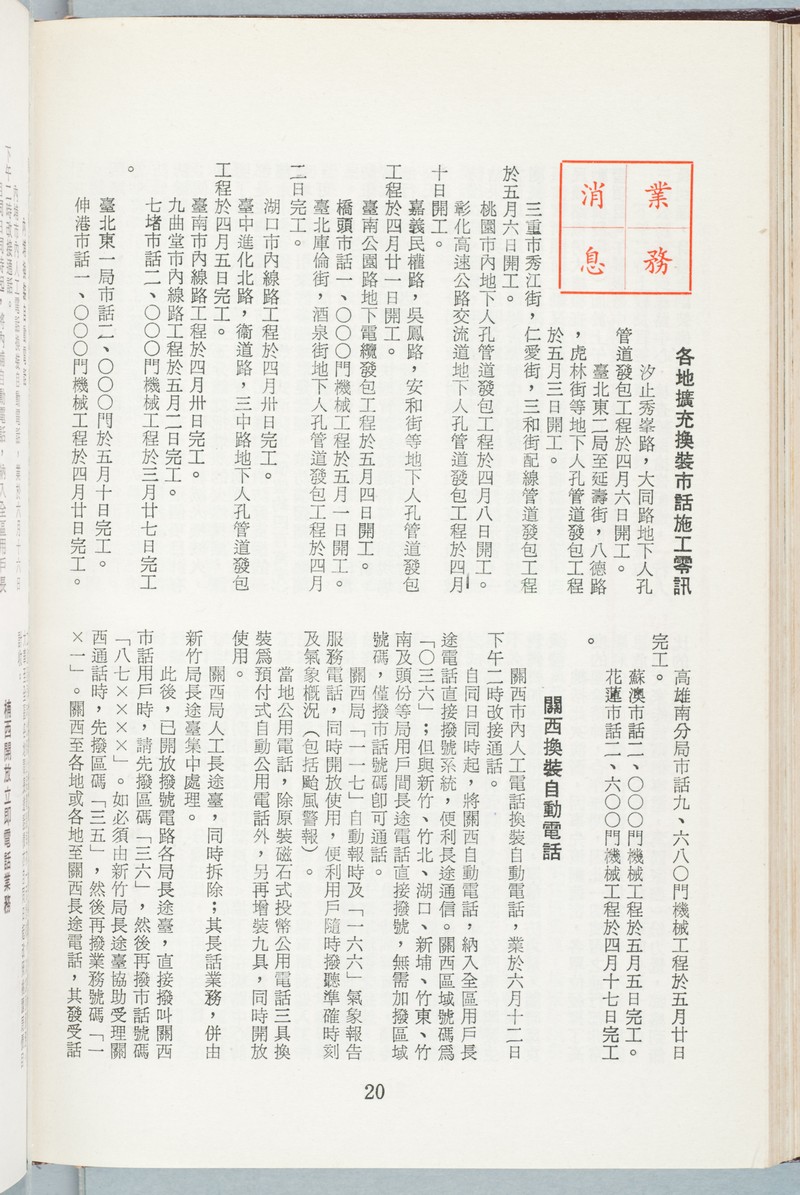 業務
消息
各地擴充換裝市話施工零訊
汐止秀峯路，大同路地下人孔
管道發包工程於四月六日開工。
臺北東二局至延壽街，八德路
，虎林街等地下人孔管道發包工程
於五月三日開工。
三重市秀江街，仁愛街，三和街配線管道發包工程
於五月六日開工。
桃園市內地下人孔管道發包工程於四月八日開工。
彰化高速公路交流道地下人孔管道發包工程於四月
十日開工。
嘉義民權路，吳鳳路，安和街等地下人孔管道發包
工程於四月廿一日開工。
臺南公園路地下電纜發包工程於五月四日開工。
橋頭市話一、〇〇〇門機械工程於五月一日開工。
臺北庫倫街，酒泉街地下人孔管道發包工程於四月
二日完工。
湖口市內線路工程於四月卅日完工。
臺中進化北路，衞道路，三中路地下人孔管道發包
工程於四月五日完工。
臺南市內線路工程於四月卅日完工。
九曲堂市內線路工程於五月二日完工。
七堵市話二、〇〇〇門機械工程於三月廿七日完工
。
臺北東一局市話二、〇〇〇門於五月十日完工。
伸港市話一、〇〇〇門機械工程於四月廿日完工。
高雄南分局市話九、六八〇門機械工程於五月廿日
完工。
蘇澳市話二、〇〇〇門機械工程於五月五日完工。
花蓮市話二、六〇〇門機械工程於四月十七日完工
。
關西換裝自動電話
關西市內人工電話換裝自動電話，業於六月十二日
下午二時改接通話。
自同日同時起，將關西自動電話，納入全區用戶長
途電話直接撥號系統，便利長途通信。關西區域號碼爲
「〇三六」；但與新竹、竹北、湖口、新埔、竹東、竹
南及頭份等局用戶間長途電話直接撥號，無需加撥區域
號碼，僅撥市話號碼卽可通話。
關西局「一一七」自動報時及「一六六」氣象報告
服務電話，同時開放使用，便利用戶隨時撥聽準確時刻
及氣象概況（包括颱風警報）。
當地公用電話，除原裝磁石式投幣公用電話三具換
裝爲預付式自動公用電話外，另再增裝九具，同時開放
使用。
關西局人工長途臺，同時拆除；其長話業務，併由
新竹局長途臺集中處理。
此後，已開放撥號電路各局長途臺，直接撥叫關西
市話用戶時，請先撥區碼「三六」，然後再撥市話號碼
「八七××××」。如必須由新竹局長途臺協助受理關
西通話時，先撥區碼「三五」，然後再撥業務號碼「一
×一」。關西至各地或各地至關西長途電話，其發受話
20